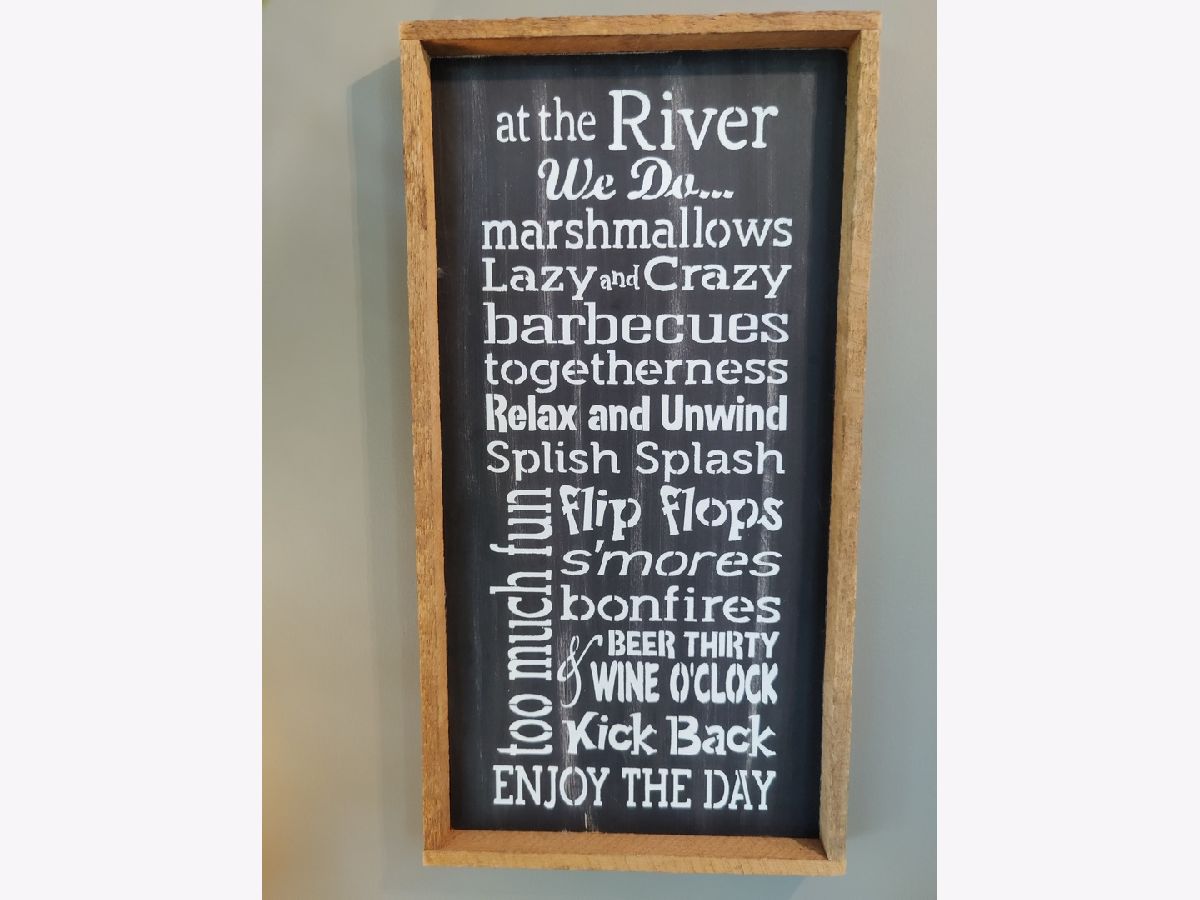 at the River
We Do...
marshmallows
Lazy and Crazy
barbecues
togetherness
Relax and Unwind
Splish Splash
too much fun
flip flops
s'mores
bonfires
BEER THIRTY
& WINE O'CLOCK
Kick Back
ENJOY THE DAY